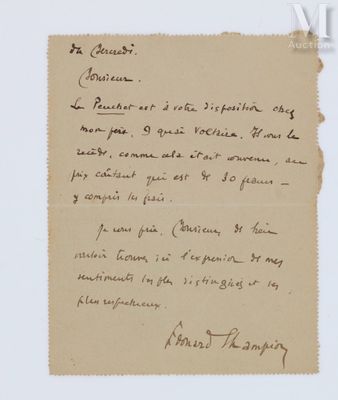 M
Auction
du Mercredi.
Monsieur.
Le Peuchet est à votre disposition chez
mon père, 9 quai Voltaire. Il vous le
recède, comme cela était convenu, au
prix coûtant qui est de 30 francs –
y compris les frais.
Je vous prie, Monsieur, de bien
vouloir trouver ici l'expression de mes
sentiments les plus distingués et les
plus respectueux.
Édouard Champion